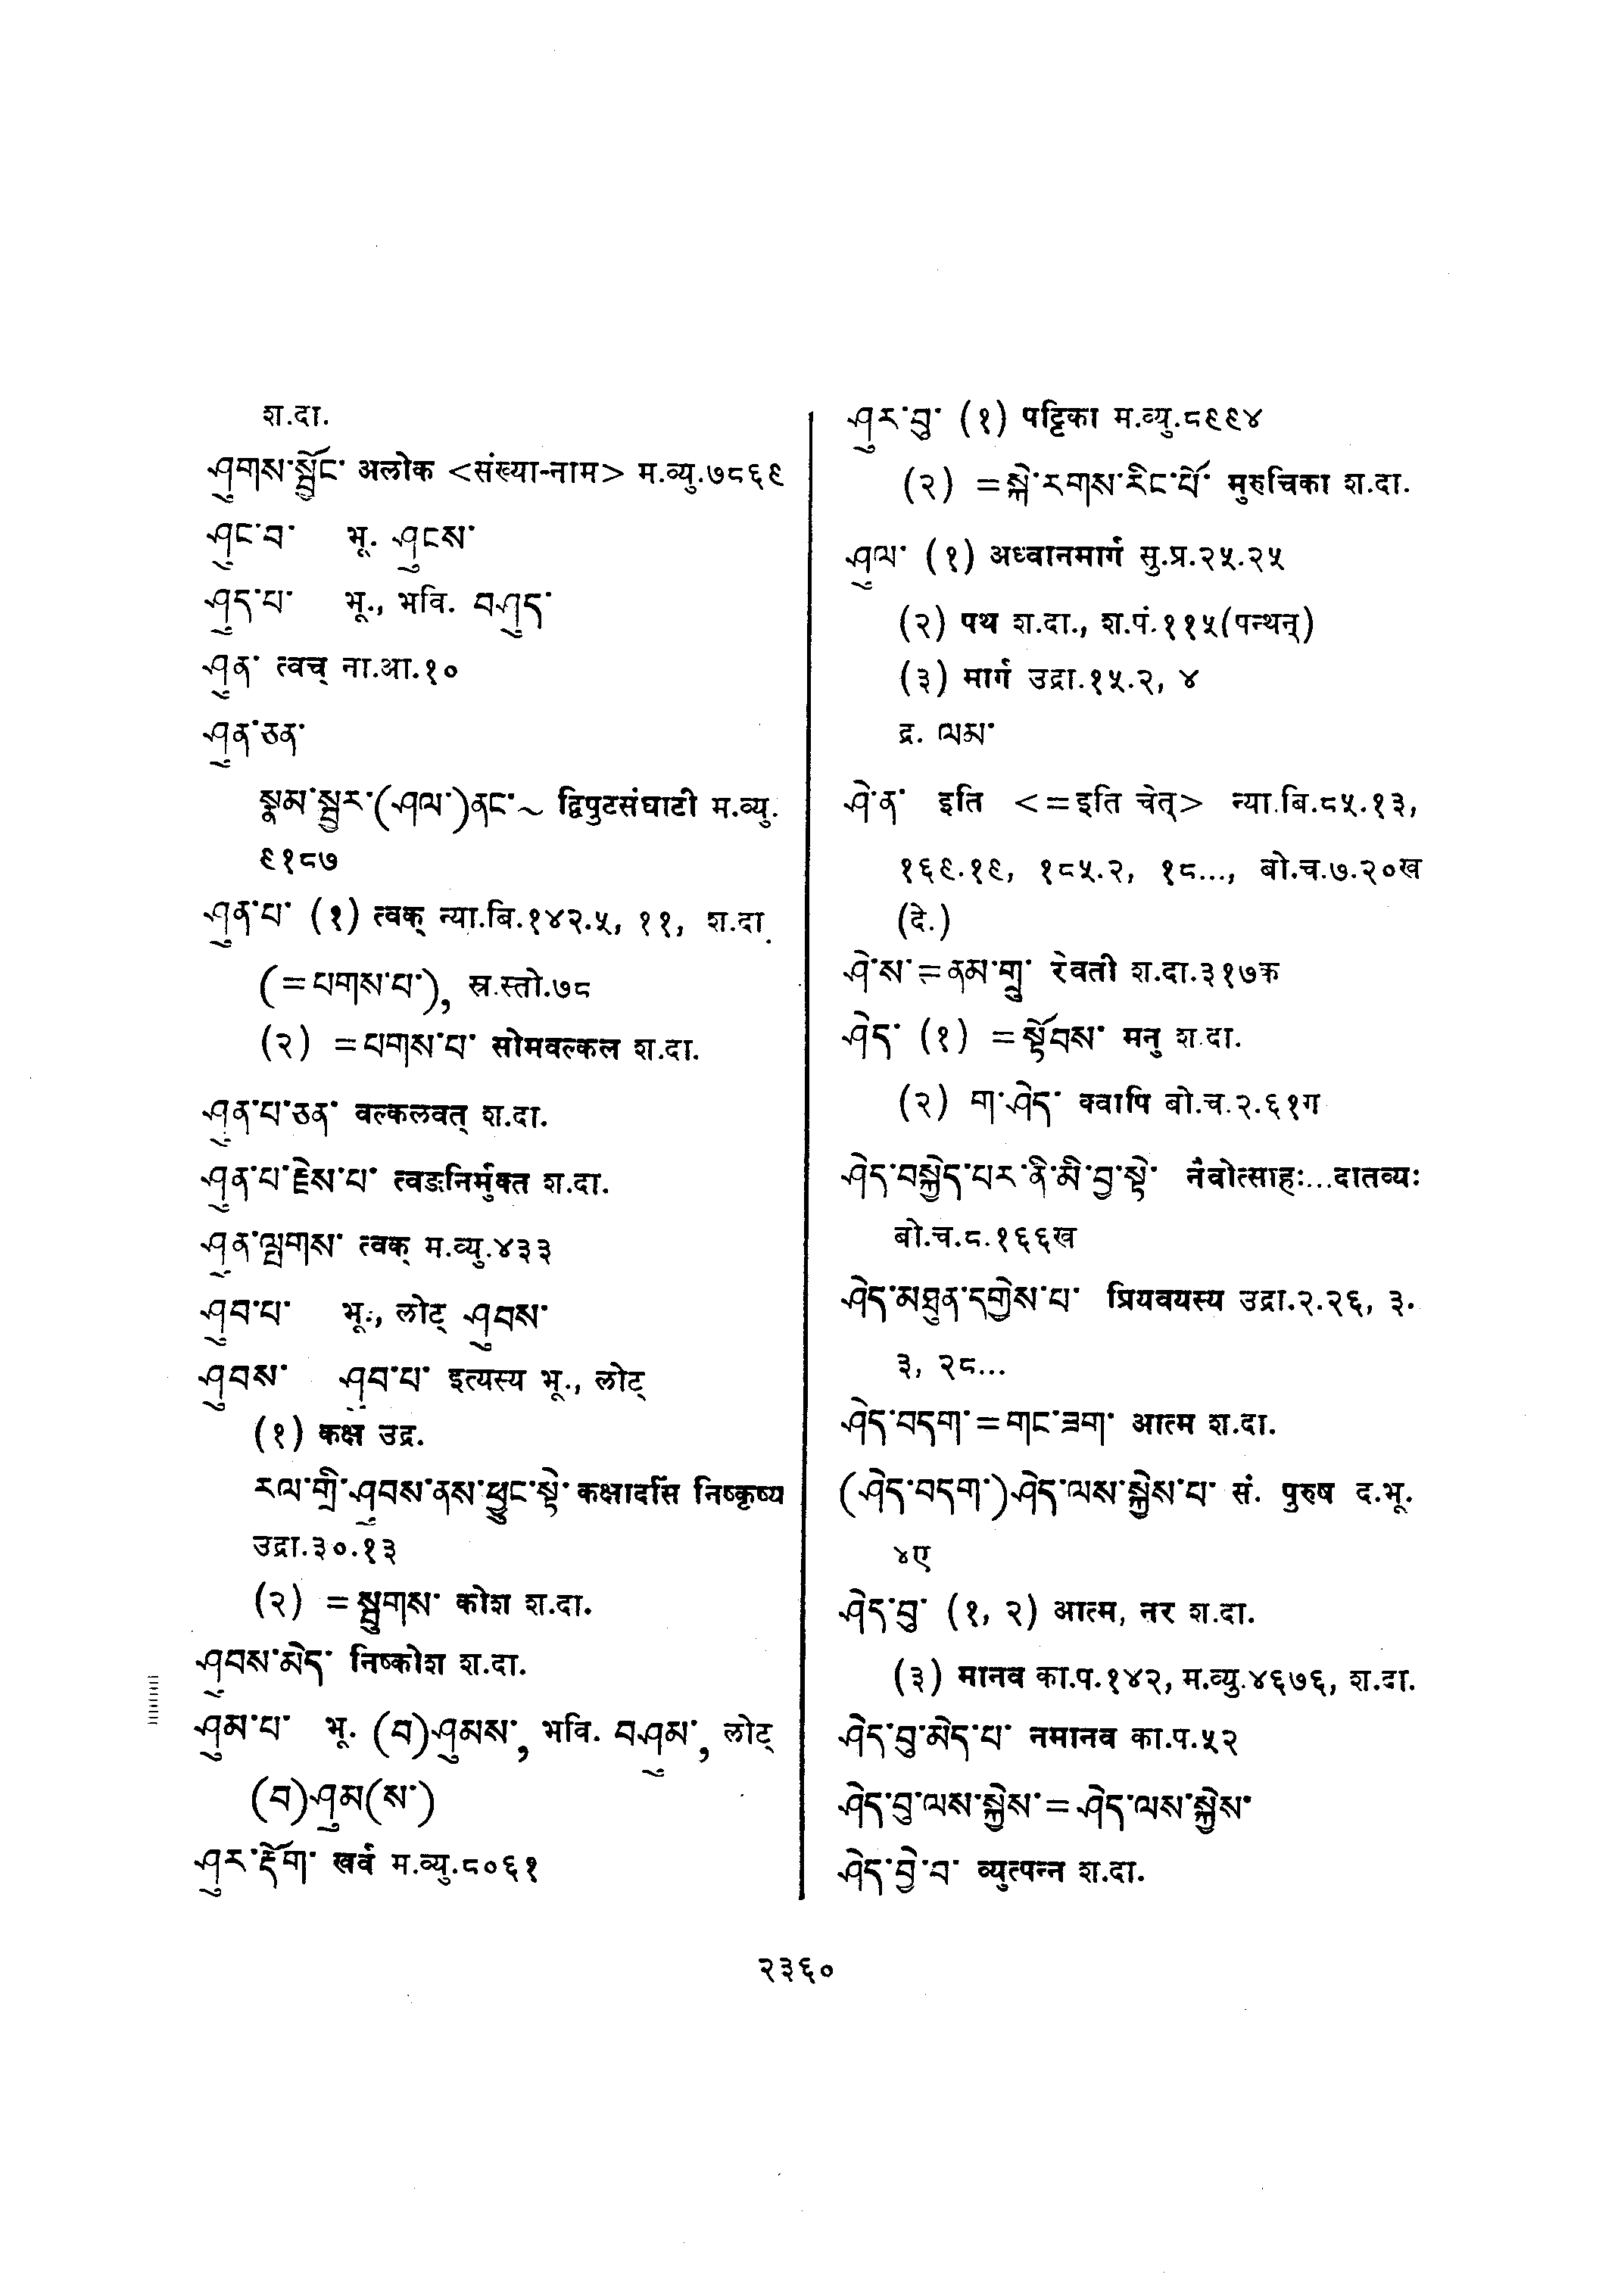 श.दा.
ཤུགས་སྦྱོང་ अलोक <संख्या-नाम> म.व्यु.७८६९
ཤུང་བ་ भू. ཤུངས་
ཤུད་པ་ भू., भवि. བཤུད་
ཤུན་ त्वच् ना.आ.१०
ཤུན་ཅན་
སྣམ་སྦྱར་(ཤལ་)ནང་~ द्विपुटसंघाटी म.व्यु.
९१८७
ཤུན་པ་ (१) त्वक् न्या.बि.१४२.५, ११, श.दा.
(=པགས་པ་), स्र.स्तो.७८
(२) =པགས་པ་ सोमवल्कल श.दा.
ཤུན་པ་ཅན་ वल्कलवत् श.दा.
ཤུན་པ་རྗེས་པ་ त्वङनिर्मुक्त श.दा.
ཤུན་ལྤགས་ त्वक् म.व्यु.४३३
ཤུབ་པ་ भू., लोट् ཤུབས་
ཤུབས་ ཤུབ་པ་ इत्यस्य भू., लोट्
(१) कक्ष उद्र.
རལ་གྲི་ཤུབས་ནས་ཕྱུང་སྟེ་ कक्षादसिं निष्कृष्य
उद्रा.३०.१३
(२) =སྦུགས་ कोश श.दा.
ཤུབས་མེད་ निष्कोश श.दा.
ཤུམ་པ་ भू. (བ)ཤུམས་, भवि. བཤུམ་, लोट्
(བ)ཤུམ(ས་)
ཤུར་རྡོག་ खर्व म.व्यु.८०६१
ཤུར་བུ་ (१) पट्टिका म.व्यु.८९९४
(२) =སྐེ་རགས་རིང་པོ་ मुरुचिका श.दा.
ཤུལ་ (१) अध्वानमार्ग सु.प्र.२५.२५
(२) पथ श.दा., श.पं.११५(पन्थन्)
(३) मार्ग उद्रा.१५.२, ४
द्र. ལམ་
ཤེ་ན་ इति <=इति चेत्> न्या.बि.८५.१३,
१६९.१९, १८५.२, १८..., बो.च.७.२०ख
(दे.)
ཤེ་ས་=ནམ་གྲུ་ रेवती श.दा.३१७क
ཤེད་ (१) =སྟོབས་ मनु श.दा.
(२) ག་ཤེད་ क्वापि बो.च.२.६१ग
ཤེད་བསྐྱེད་པར་ནི་མི་བྱ་སྟེ་ नैवोत्साहः...दातव्यः
बो.च.८.१६६ख
ཤེད་མཐུན་དགྱེས་པ་ प्रियवयस्य उद्रा.२.२६, ३.
३, २८...
ཤེད་བདག་=གང་ཟག་ आत्म श.दा.
(ཤེད་བདག་)ཤེད་ལས་སྐྱེས་པ་ सं. पुरुष द.भू.
४ए
ཤེད་བུ་ (१, २) आत्म, नर श.दा.
(३) मानव का.प.१४२, म.व्यु.४६७६, श.दा.
ཤེད་བུ་མེད་པ་ नमानव का.प.५२
ཤེད་བུ་ལས་སྐྱེས་=ཤེད་ལས་སྐྱེས་
ཤེད་བྱེ་བ་ व्युत्पन्न श.दा.
२३६०